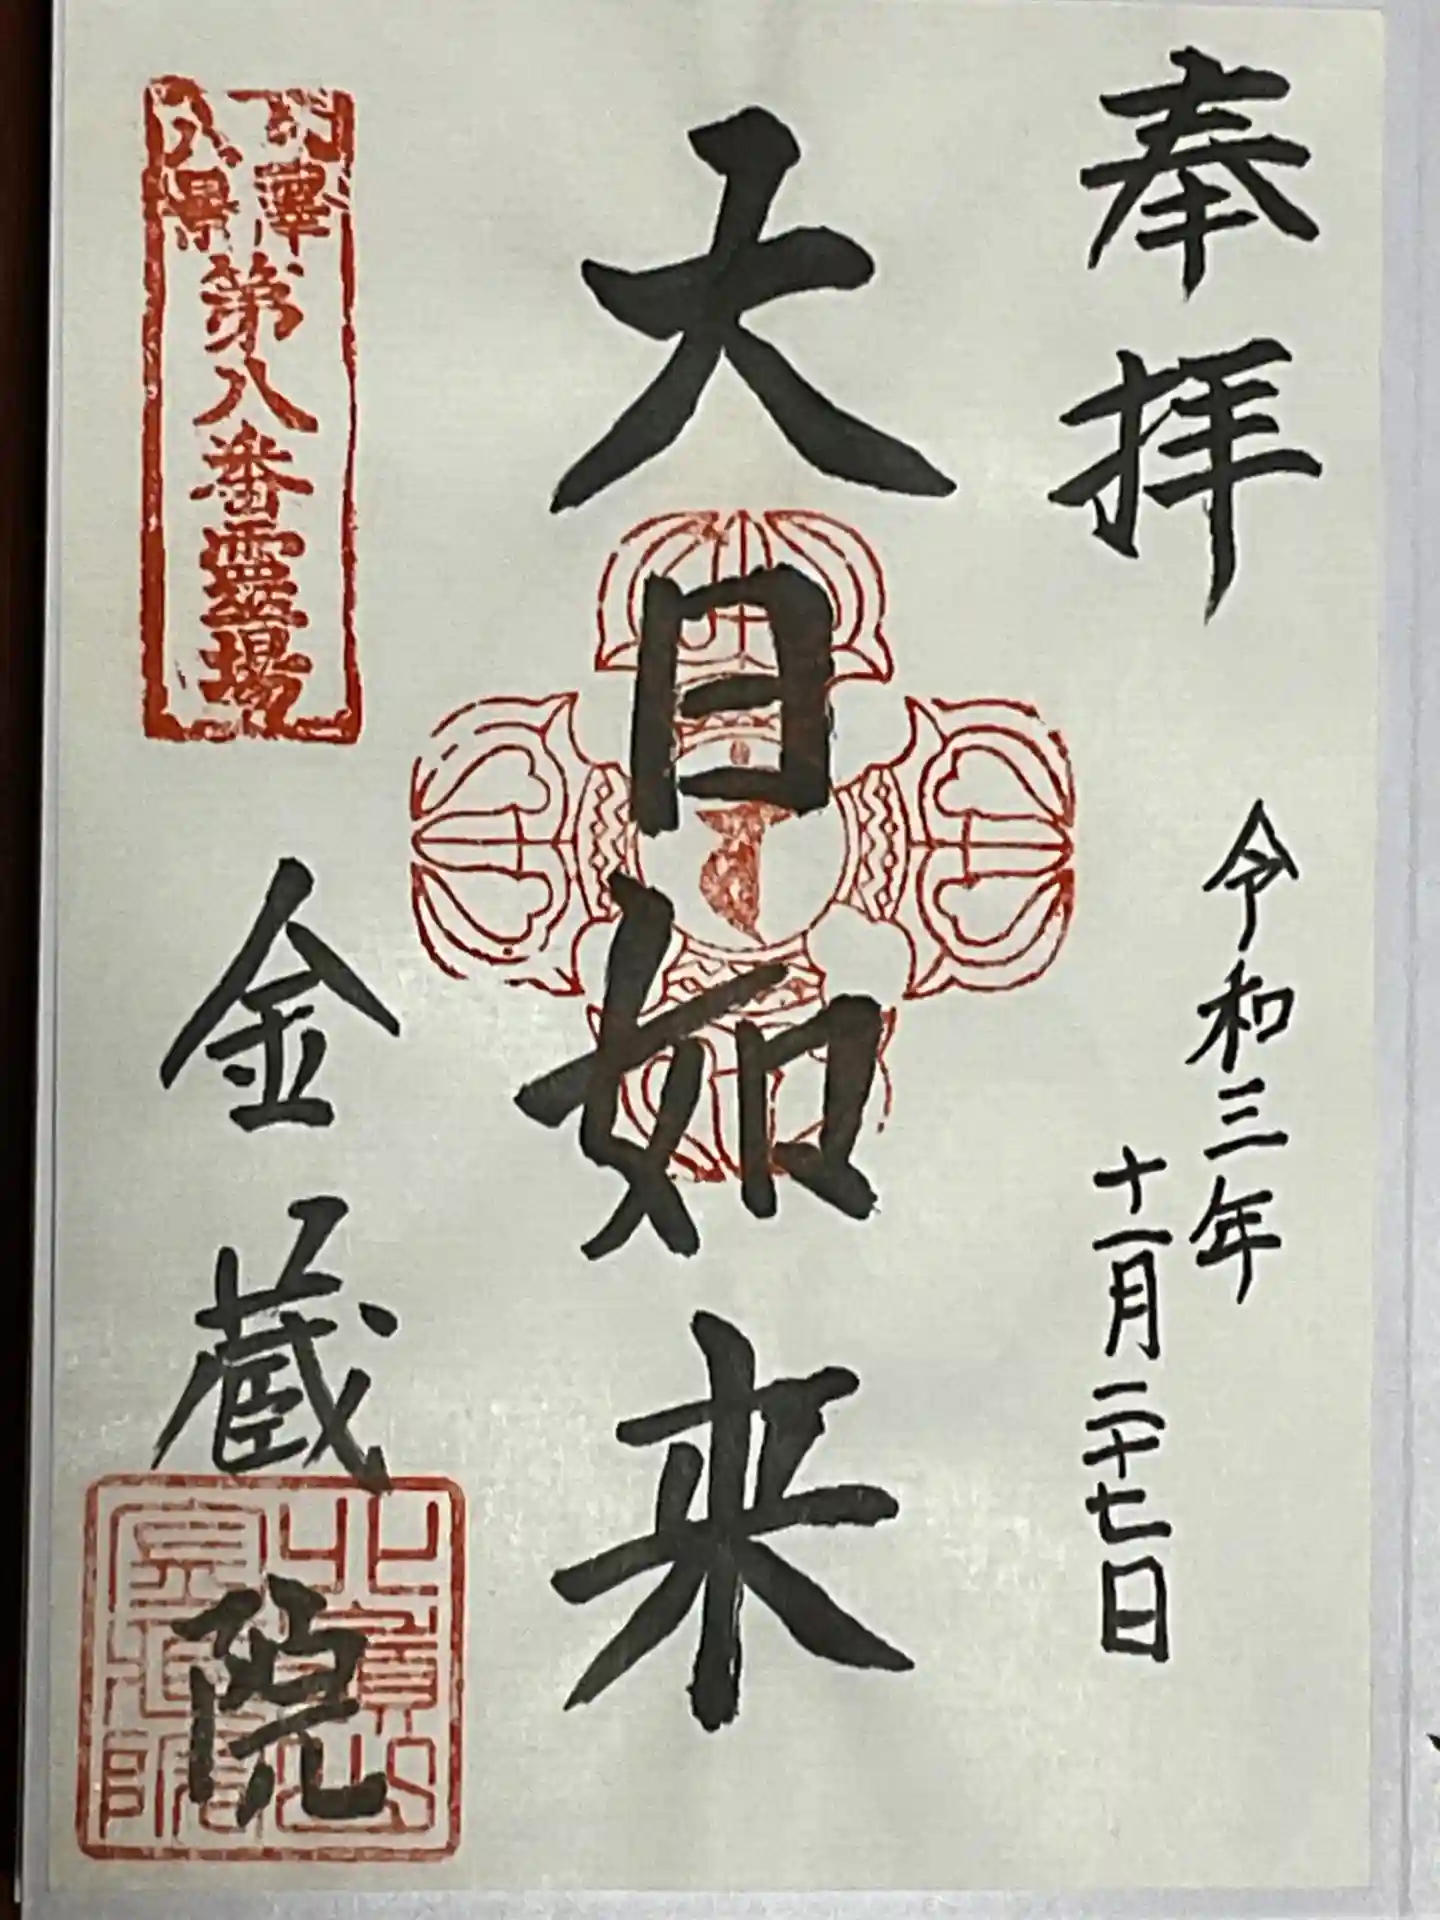 奉拝
令和三年
十一月二十七日
大日如来
澤
八景
第八番霊場
金蔵院